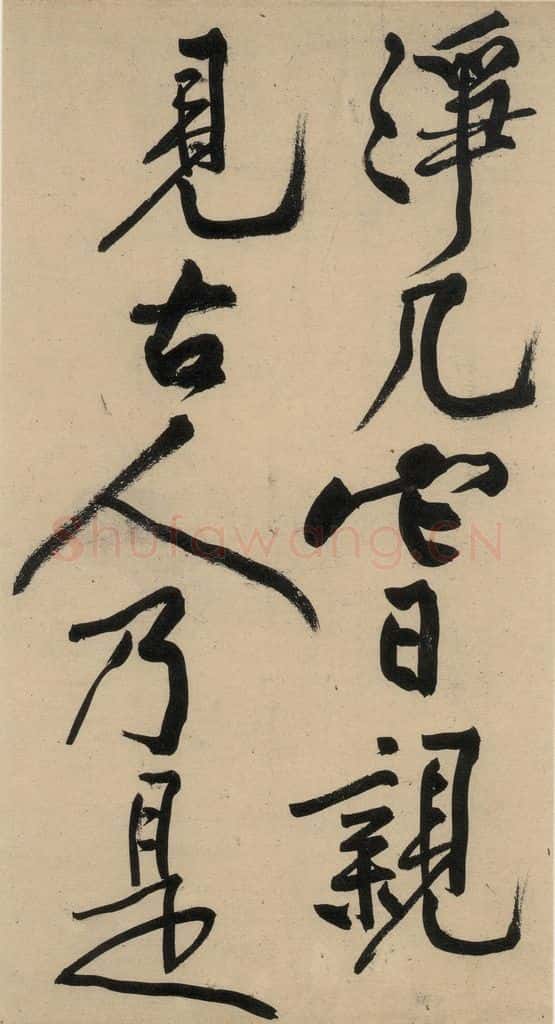 淨几它日親
見古人乃是
Shufawang.CN